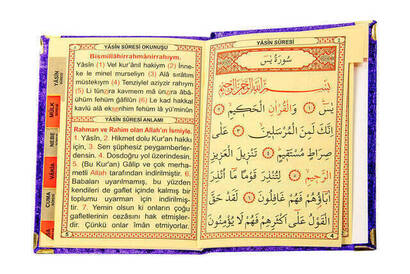 YÂSÎN SÛRESİ OKUNUŞU
Bismillâhirrahmânirrahıym.
Yâsîn (1) Vel kur'ânil hakiym (2) İnne-
ke le minel murseliyn (3) Alâ sırâtın
müstekıym (4) Tenziylel azıyzirrahıym
(5) Li tünzira kavmen mâ ünzira âbâ-
ühüm fehüm ğâfilûn (6) Le kad hakkal
kavlü alâ ekserihim fehüm lâ yü'minûn
YÂSÎN SÛRESİ ANLAMI
Rahman ve Rahim olan Allah'ın İsmiyle.
1. Yâsîn, 2. Hikmet dolu Kur'an hakkı
için, 3. Sen şüphesiz peygamberler-
densin. 4. Dosdoğru yol üzerindesin.
5. (Bu Kur'an) Gâlip ve çok merha-
metli Allah tarafından indirilmiştir. 6.
Babaları uyarılmamış, bu yüzden
kendileri de gaflet içinde kalmış bir
toplumu uyarman için indirilmiş-
tir. 7. Yemin olsun ki onların çoğu
gafletlerinin cezasını hak etmişler-
dir. Çünkü onlar iman etmiyorlar.
YÂSÎN
MÜLK
NEBE
VÂKIA
CUMA
YÂSÎN SÛRESİ
سُورَةُ يٰسٓ
بِسْمِ اللّٰهِ الرَّحْمٰنِ الرَّحِيمِ
يٰسٓ ﴿١﴾ وَالْقُرْاٰنِ الْحَكِيمِ ﴿٢﴾
اِنَّكَ لَمِنَ الْمُرْسَلِينَ ﴿٣﴾ عَلٰى
صِرَاطٍ مُسْتَقِيمٍ ﴿٤﴾ تَنْزِيلَ الْعَزِيزِ
الرَّحِيمِ ﴿٥﴾ لِتُنْذِرَ قَوْمًا مَٓا اُنْذِرَ
اٰبَٓاؤُ۬هُمْ فَهُمْ غَافِلُونَ ﴿٦﴾ لَقَدْ حَقَّ
الْقَوْلُ عَلٰٓى اَكْثَرِهِمْ فَهُمْ لَا يُؤْمِنُونَ
4